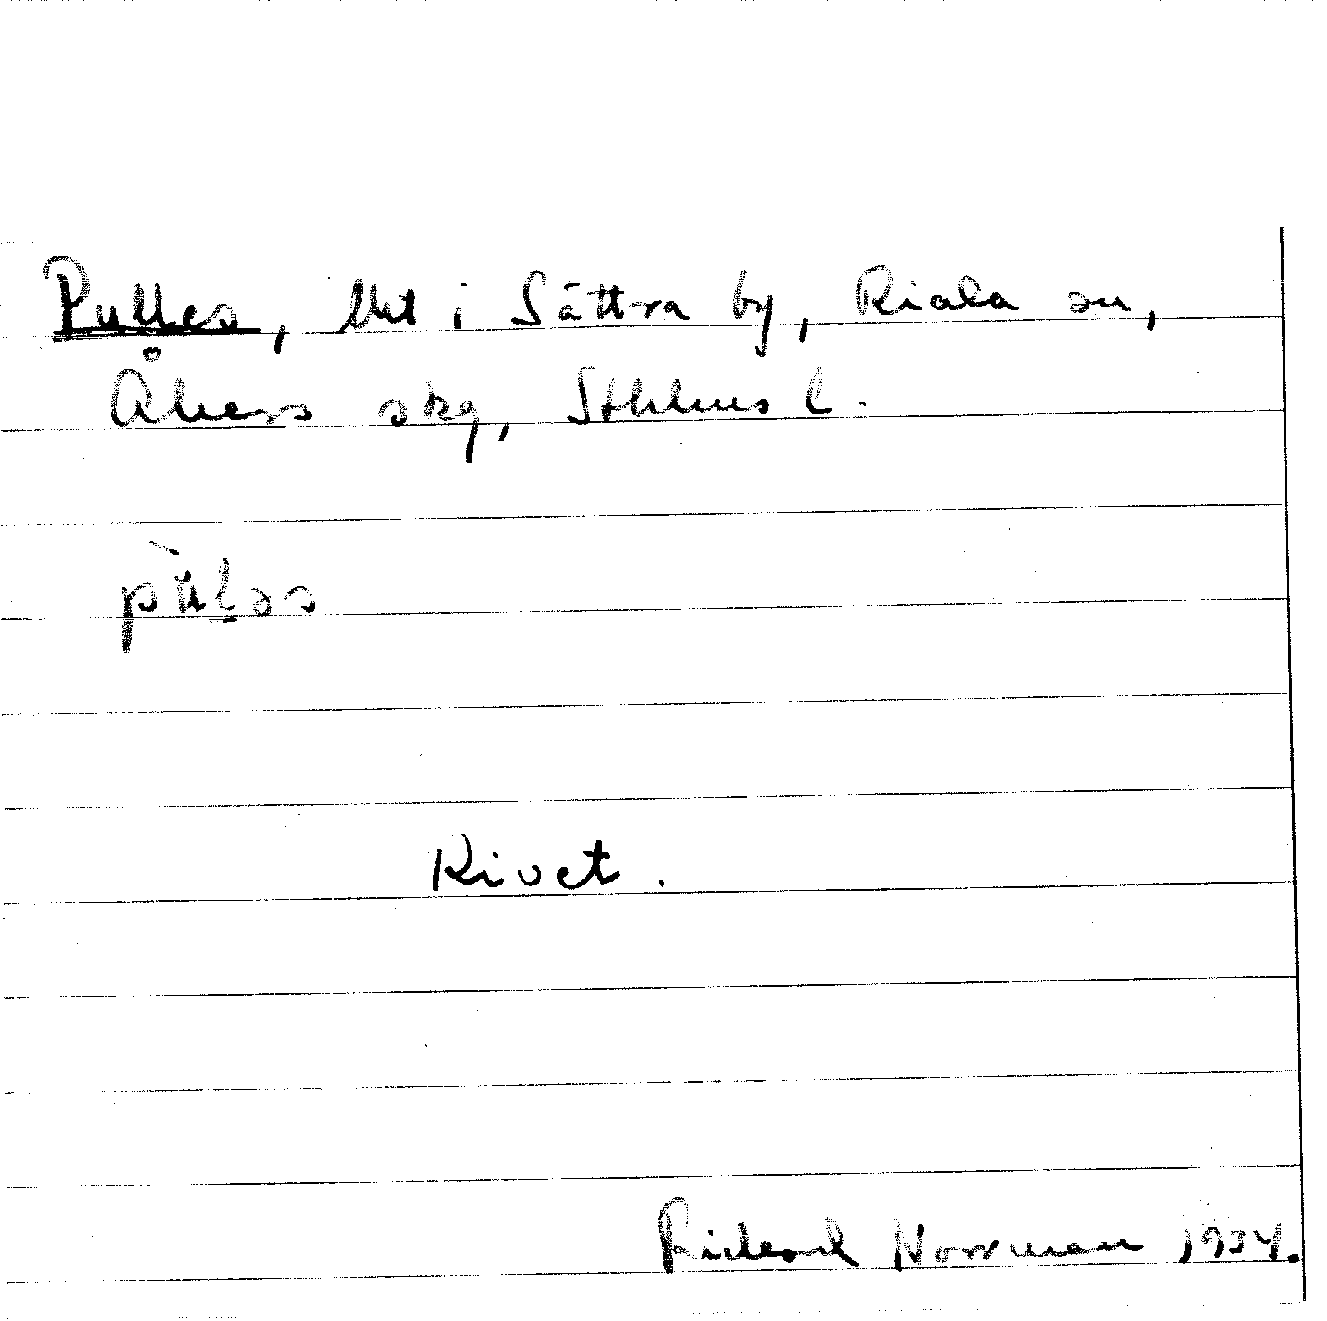 Pulles, lht i Sättra by, Riala sn,
Åkers skg, Sthlms l.
pùləs
Rivet.
Rickard Norrman 1934.